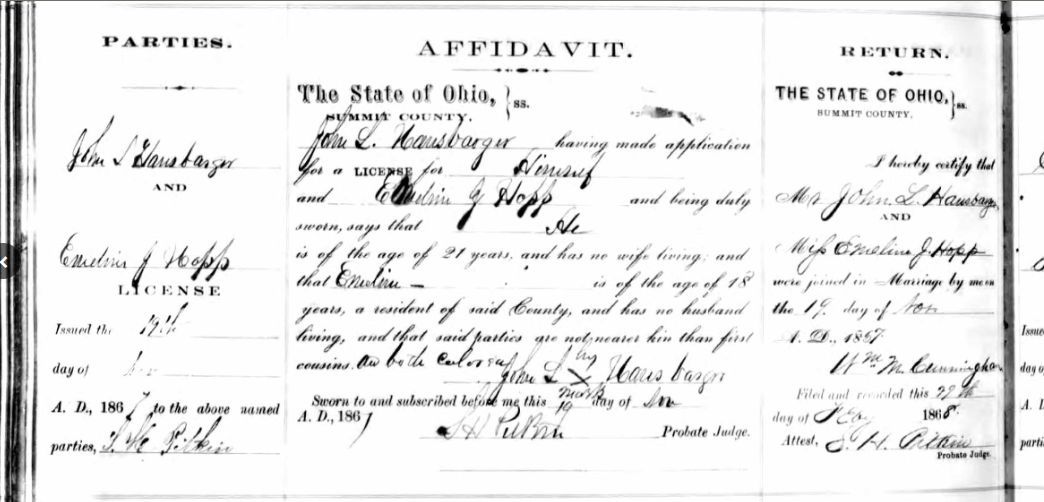 PARTIES.
John L Hansbarger
AND
Emeline J Hopp
LICENSE
Issued the 19th
day of Nov
A. D., 1867 to the above named
parties, S H Pitkin
AFFIDAVIT.
The State of Ohio, } ss.
SUMMIT COUNTY.
John L. Hansbarger having made application
for a LICENSE for Himself
and Emeline J Hopp and being duly
sworn, says that He
is of the age of 21 years, and has no wife living; and
that Emeline is of the age of 18
years, a resident of said County, and has no husband
living, and that said parties are not nearer kin than first
cousins. are both colored
John L his X mark Hansbarger
Sworn to and subscribed before me this 19 day of Nov
A. D., 1867
S H Pitkin Probate Judge.
RETURN.
THE STATE OF OHIO, } ss.
SUMMIT COUNTY.
I hereby certify that
Mr John. L. Hansbarger
AND
Miss Emeline J. Hopp
were joined in Marriage by me on
the 19 day of Nov
A. D., 1867
Wm M. Cunningham
Filed and recorded this 29th
day of Feby 1868
Attest, S. H. Pitkin
Probate Judge.